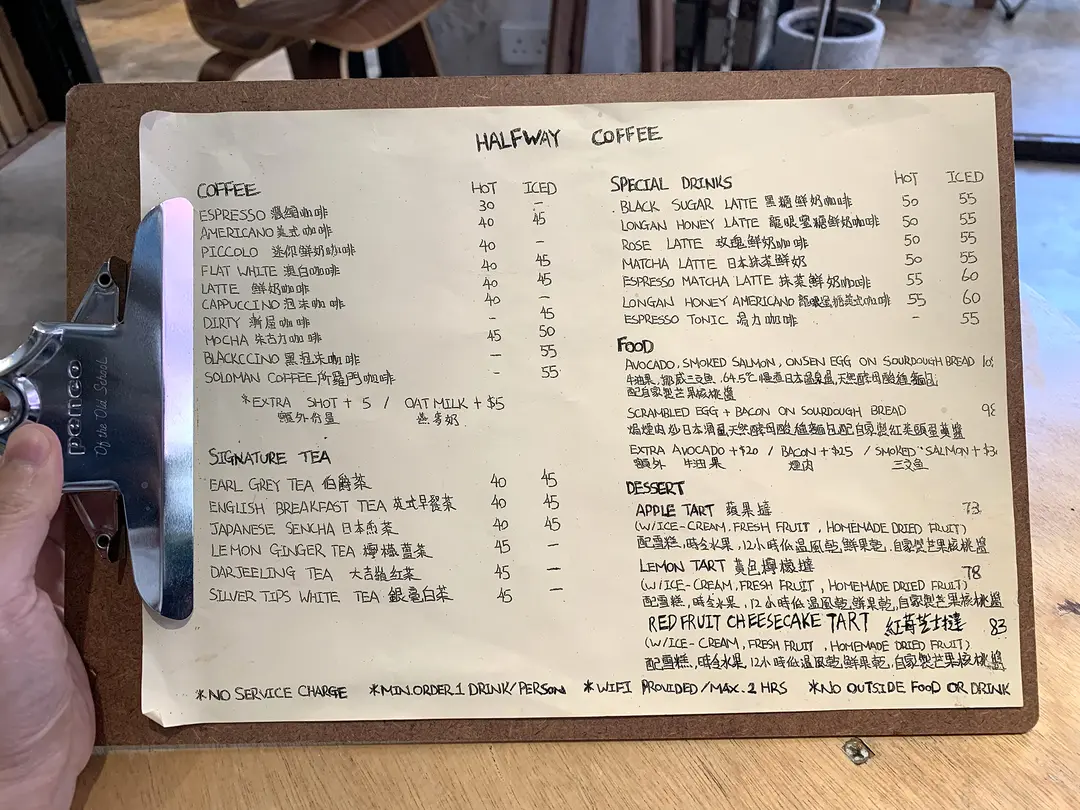 HALFWAY COFFEE
COFFEE HOT ICED
ESPRESSO 濃縮咖啡 30 —
AMERICANO 美式咖啡 40 45
PICCOLO 迷你鮮奶咖啡 40 —
FLAT WHITE 澳白咖啡 40 45
LATTE 鮮奶咖啡 40 45
CAPPUCCINO 泡沫咖啡 40 —
DIRTY 漸層咖啡 — 45
MOCHA 朱古力咖啡 45 50
BLACKCCINO 黑泡沫咖啡 — 55
SOLOMAN COFFEE 所羅門咖啡 — 55
*EXTRA SHOT + 5 / OAT MILK + $5
額外份量 燕麥奶
SIGNATURE TEA
EARL GREY TEA 伯爵茶 40 45
ENGLISH BREAKFAST TEA 英式早餐茶 40 45
JAPANESE SENCHA 日本煎茶 40 45
LEMON GINGER TEA 檸檬薑茶 45 —
DARJEELING TEA 大吉嶺紅茶 45 —
SILVER TIPS WHITE TEA 銀毫白茶 45 —
SPECIAL DRINKS HOT ICED
BLACK SUGAR LATTE 黑糖鮮奶咖啡 50 55
LONGAN HONEY LATTE 龍眼蜜糖鮮奶咖啡 50 55
ROSE LATTE 玫瑰鮮奶咖啡 50 55
MATCHA LATTE 日本抹茶鮮奶 50 55
ESPRESSO MATCHA LATTE 抹茶鮮奶咖啡 55 60
LONGAN HONEY AMERICANO 龍眼蜜糖美式咖啡 55 60
ESPRESSO TONIC 湯力咖啡 — 55
FOOD
AVOCADO, SMOKED SALMON, ONSEN EGG ON SOURDOUGH BREAD
牛油果, 挪威三文魚, 64.5℃慢煮日本溫泉蛋, 天然酵母酸種麵包
配自家製芒果核桃醬
SCRAMBLED EGG + BACON ON SOURDOUGH BREAD
焗煙肉炒日本滑蛋, 天然酵母酸種麵包, 配自家製紅菜頭蛋黃醬
EXTRA AVOCADO + $20 / BACON + $25 / SMOKED SALMON +
額外 牛油果 煙肉 三文魚
DESSERT
APPLE TART 蘋果撻 73
(W/ICE-CREAM, FRESH FRUIT, HOMEMADE DRIED FRUIT)
配雪糕, 時令水果, 12小時低溫風乾鮮果乾, 自家製芒果核桃醬
LEMON TART 黃色檸檬撻 78
(W/ICE-CREAM, FRESH FRUIT, HOMEMADE DRIED FRUIT)
配雪糕, 時令水果, 12小時低溫風乾鮮果乾, 自家製芒果核桃醬
RED FRUIT CHEESECAKE TART 紅莓芝士撻 83
(W/ICE-CREAM, FRESH FRUIT, HOMEMADE DRIED FRUIT)
配雪糕, 時令水果, 12小時低溫風乾鮮果乾, 自家製芒果核桃醬
*NO SERVICE CHARGE *MIN.ORDER 1 DRINK/PERSON *WIFI PROVIDED/MAX. 2 HRS *NO OUTSIDE FOOD OR DRINK
penco
Of the Old School